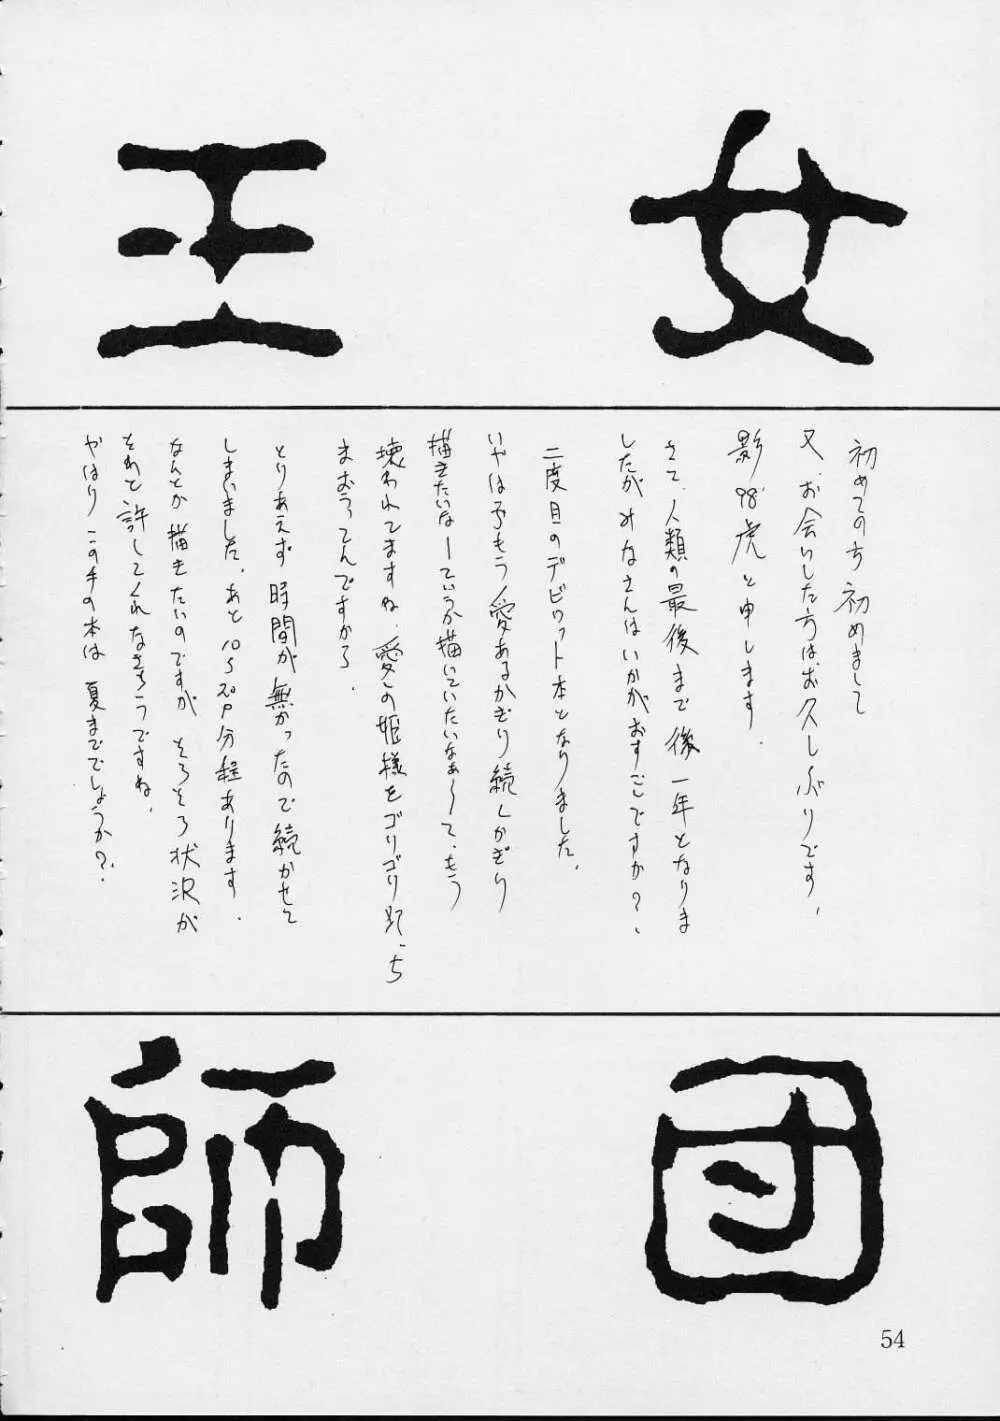 王女
初めての方 初めまして
又、お会いした方はお久しぶりです、
影98'虎と申します.
さて、人類の最後まで後一年となりま
したがみなさんはいかがおすごしですか?、
二度目のデビゥット本となりました、
いやは予もう愛あるかぎり続くかぎり
描きたいなーていうか描いていたいなぁ〜て、もう
壊われてますね、愛の姫様をゴリゴリ
まおうってんですから、
とりあえず時間が無かったので続かせて
しまいました、あと 分程あります.
なんとか描きたいのですが そろそろ状況が
それを許してくれなさそうですね、
やはりこの手の本は夏まででしょうか?.
師団
54